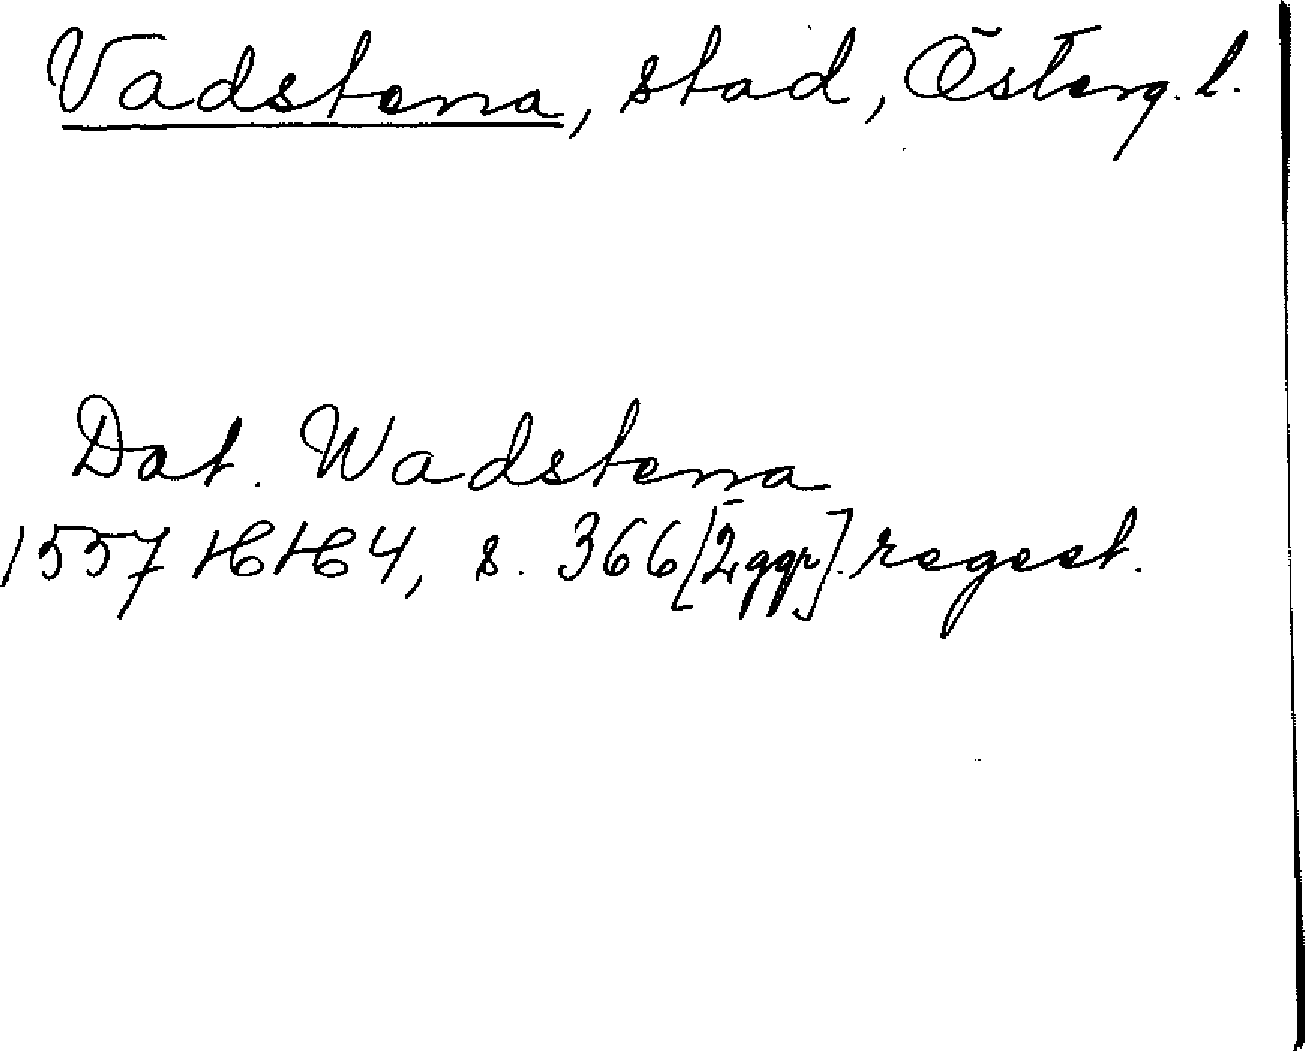 Vadstena, stad, Österg. l.
Dat. Wadstena
1557 HH 4, s. 366 [2 ggr]. regest.